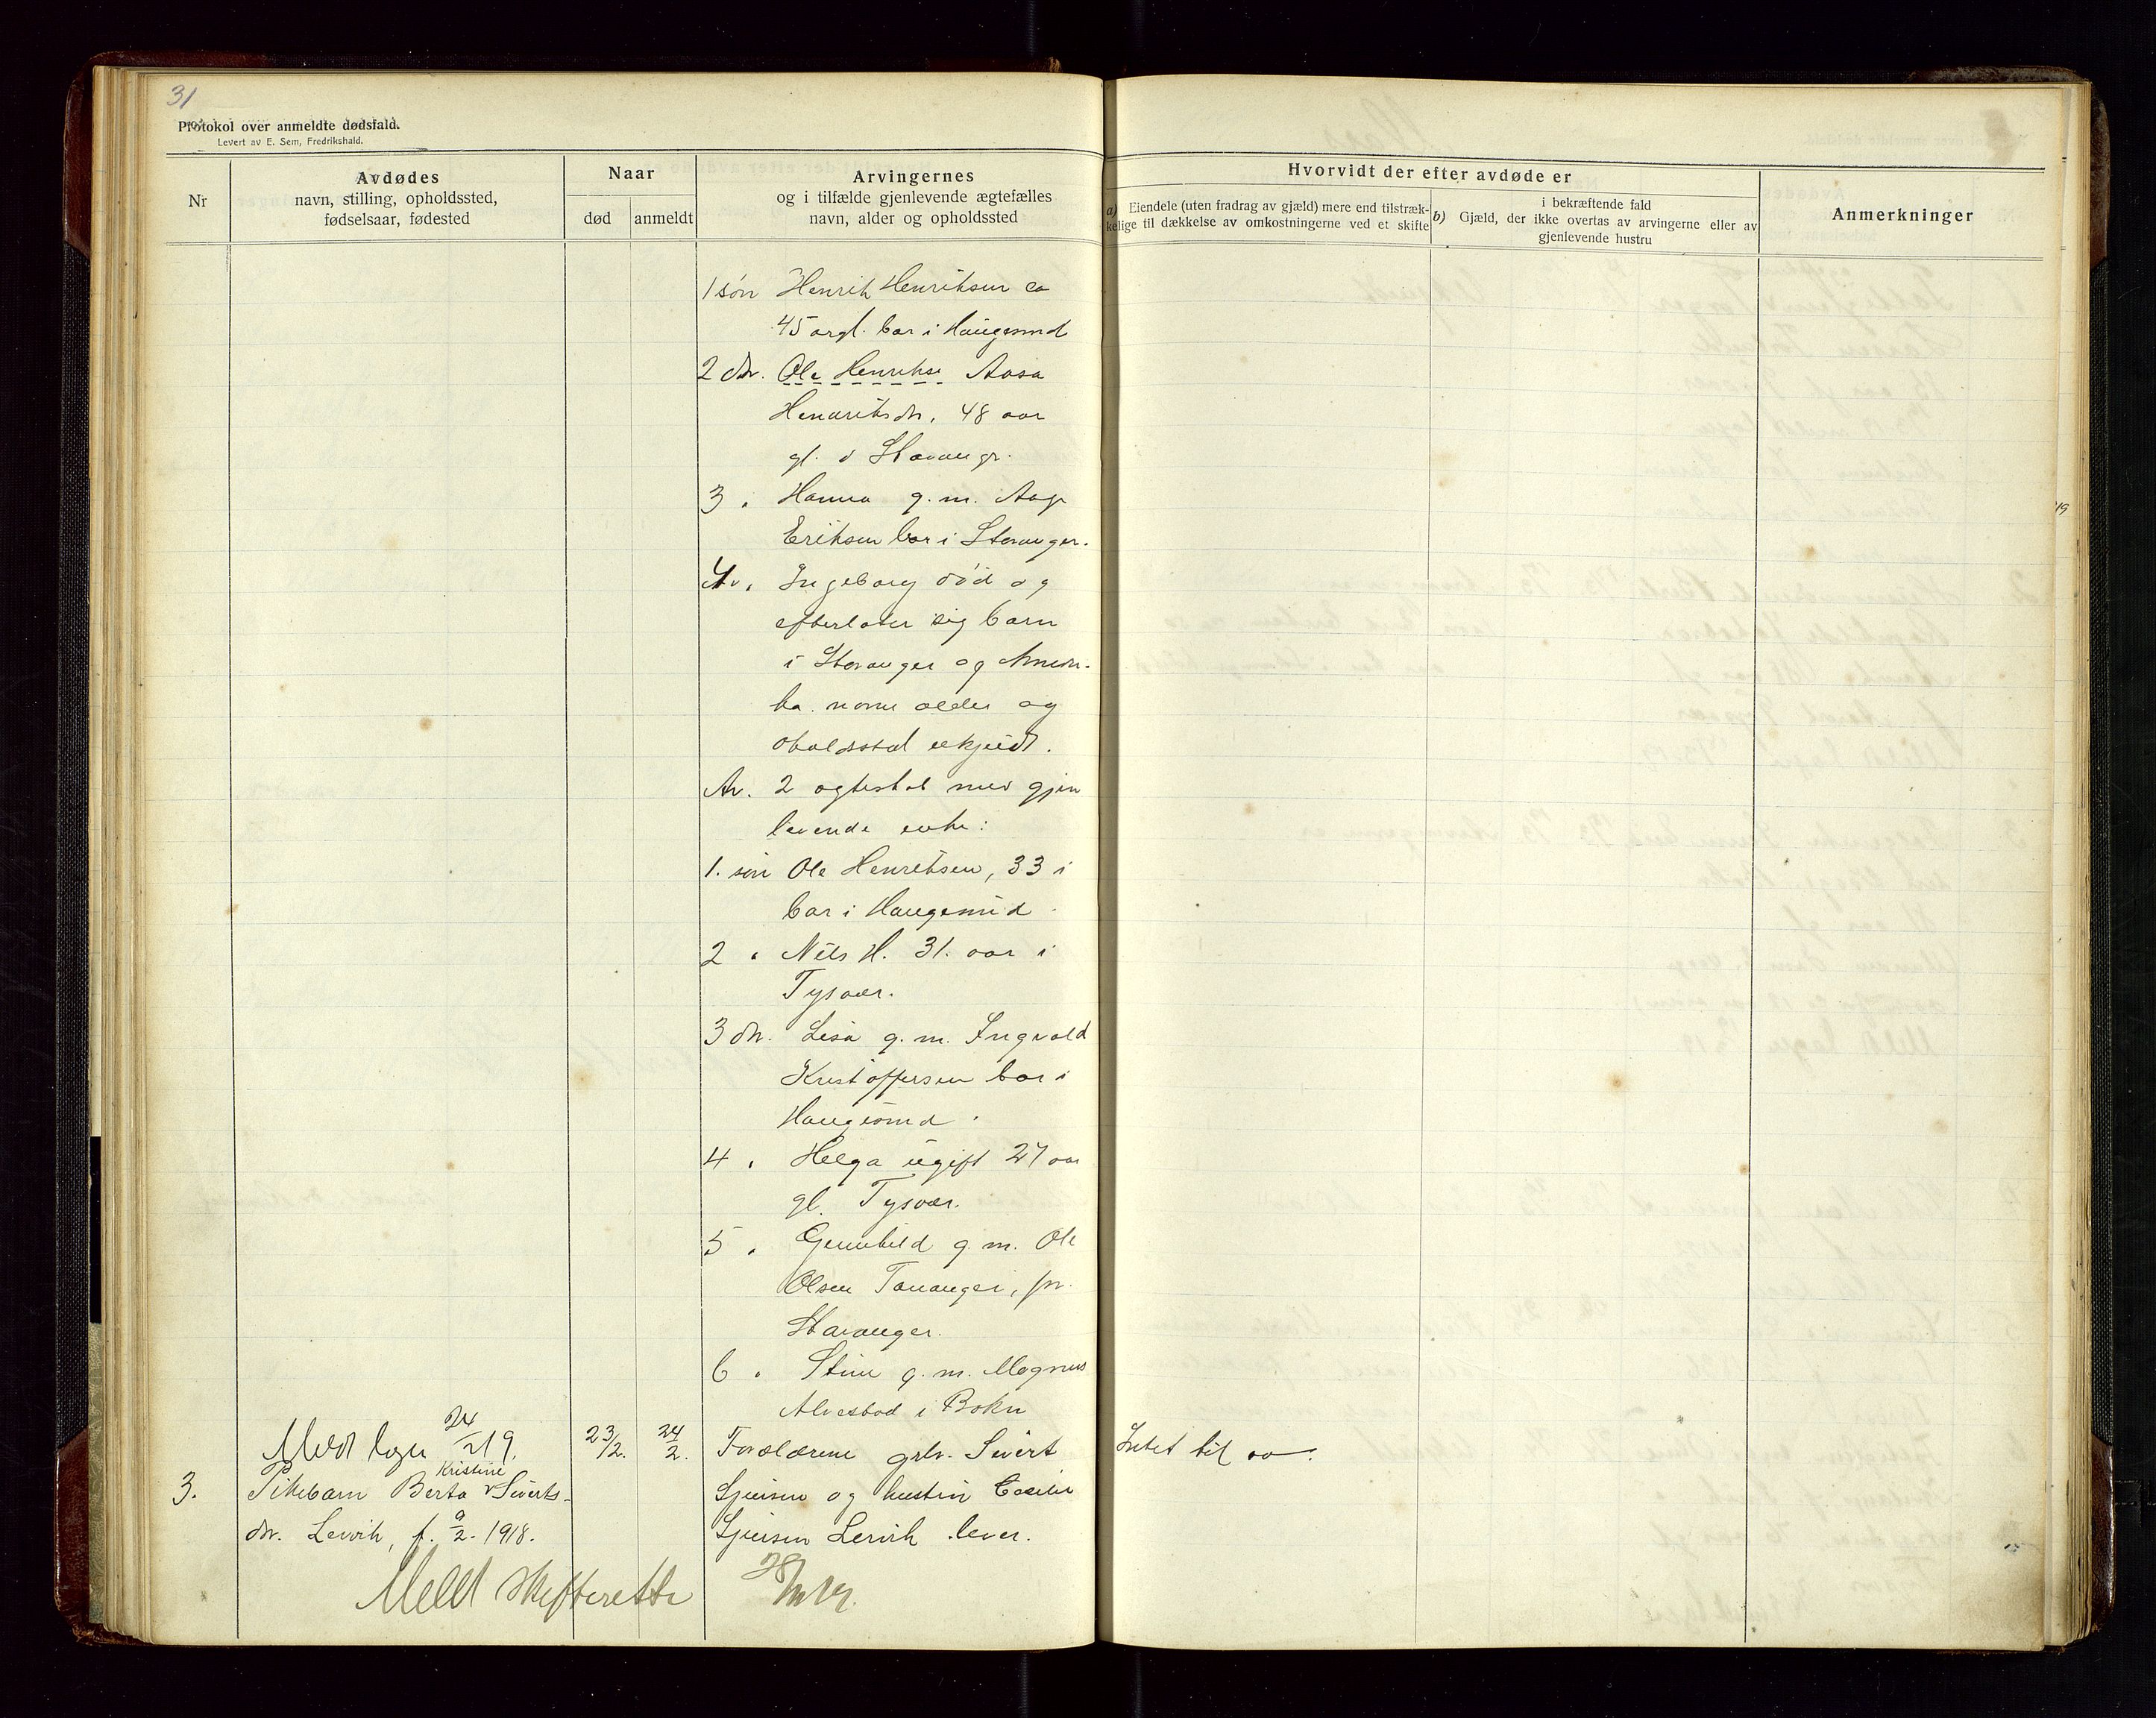 31
Protokol over anmeldte dødsfald.
Levert av E. Sem, Fredrikshald.
Nr
Avdødes
navn, stilling, opholdssted,
fødselsaar, fødested
Naar
død
anmeldt
Arvingernes
og i tilfælde gjenlevende ægtefælles
navn, alder og opholdssted
Hvorvidt der efter avdøde er
a) Eiendele (uten fradrag av gjæld) mere end tilstræk-
kelige til dækkelse av omkostningerne ved et skifte
i bekræftende fald
b) Gjæld, der ikke overtas av arvingerne eller av
gjenlevende hustru
Anmerkninger
1 søn Henrik Henriksen ca
45 argl. bor i Haugesund
2 dtr. Ole Henrikse Aasa
Hendriksdtr, 48 aar
gl. i Stavanger.
3 " Hanna g. m. Aage
Eriksen bor i Stavanger.
4 " Ingeborg død og
efterlater sig barn
i Stavanger og Ameri-
ka. navne alder og
opholdssted ukjendt.
Av. 2 egteskab med gjen
levende enke:
1. søn Ole Henriksen, 33 i
bor i Haugesund
2 " Nils H. 31. aar i
Tysvær.
3 dtr. Lisa g. m. Ingvald
Kristoffersen bor i
Haugesund.
4 " Helga ugift 27 aar
gl. Tysvær.
5 " Gunhild g. m. Ole
Olsen Tananger, pr.
Stavanger.
6 " Stine g. m. Magnus
Alvestad i Bokn
Meldt 24/2 19.
3. Pikebarn Berta Kristine Siverts-
dtr. Lervik, f. 9/2. 1918.
23/2. 24/2.
Forældrene grbr. Sivert
og hustru Cecilie
Lervik lever.
Intet til
Meldt skifteretten 28/2 19.